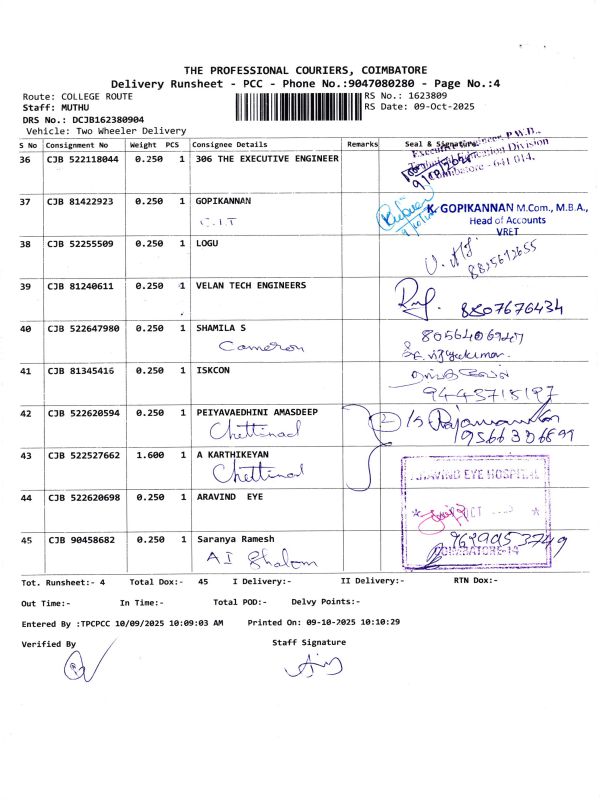 THE PROFESSIONAL COURIERS, COIMBATORE
Delivery Runsheet - PCC - Phone No.:9047080280 - Page No.:4
Route: COLLEGE ROUTE RS No.: 1623809
Staff: MUTHU RS Date: 09-Oct-2025
DRS No.: DCJB162380904
Vehicle: Two Wheeler Delivery
S No Consignment No Weight PCS Consignee Details Remarks Seal & Signature
36 CJB 522118044 0.250 1 306 THE EXECUTIVE ENGINEER
Executive Engineer, P.W.D.,
Division
Coimbatore - 641 014.
37 CJB 81422923 0.250 1 GOPIKANNAN
C.I.T
K. GOPIKANNAN M.Com., M.B.A.,
Head of Accounts
VRET
38 CJB 52255509 0.250 1 LOGU
8825612655
39 CJB 81240611 0.250 1 VELAN TECH ENGINEERS
8807676434
40 CJB 522647980 0.250 1 SHAMILA S
Cameron
41 CJB 81345416 0.250 1 ISKCON
9443718197
42 CJB 522620594 0.250 1 PEIYAVAEDHINI AMASDEEP
Chettinad
2
43 CJB 522527662 1.600 1 A KARTHIKEYAN
Chettinad
ARAVIND EYE HOSPITAL
44 CJB 522620698 0.250 1 ARAVIND EYE
OCT
45 CJB 90458682 0.250 1 Saranya Ramesh
AI Shalom
COIMBATORE-14
Tot. Runsheet:- 4 Total Dox:- 45 I Delivery:- II Delivery:- RTN Dox:-
Out Time:- In Time:- Total POD:- Delvy Points:-
Entered By :TPCPCC 10/09/2025 10:09:03 AM Printed On: 09-10-2025 10:10:29
Verified By Staff Signature